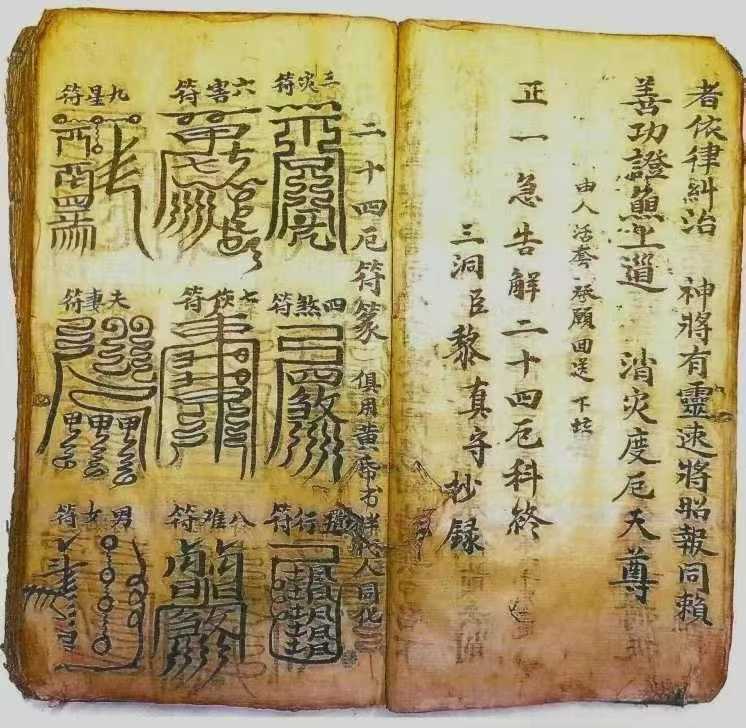 者依律糾治　神將有靈速將昭報同賴
善功證無上道　消災度厄天尊
由人活套　承願回送　下壇
正一急告解二十四厄科終
三洞臣黎真守抄錄
二十四厄符篆　俱用黃帋書
人同化
三災符
六害符
九星符
四煞符
七傷符
夫妻符
五行符
八难符
男女符